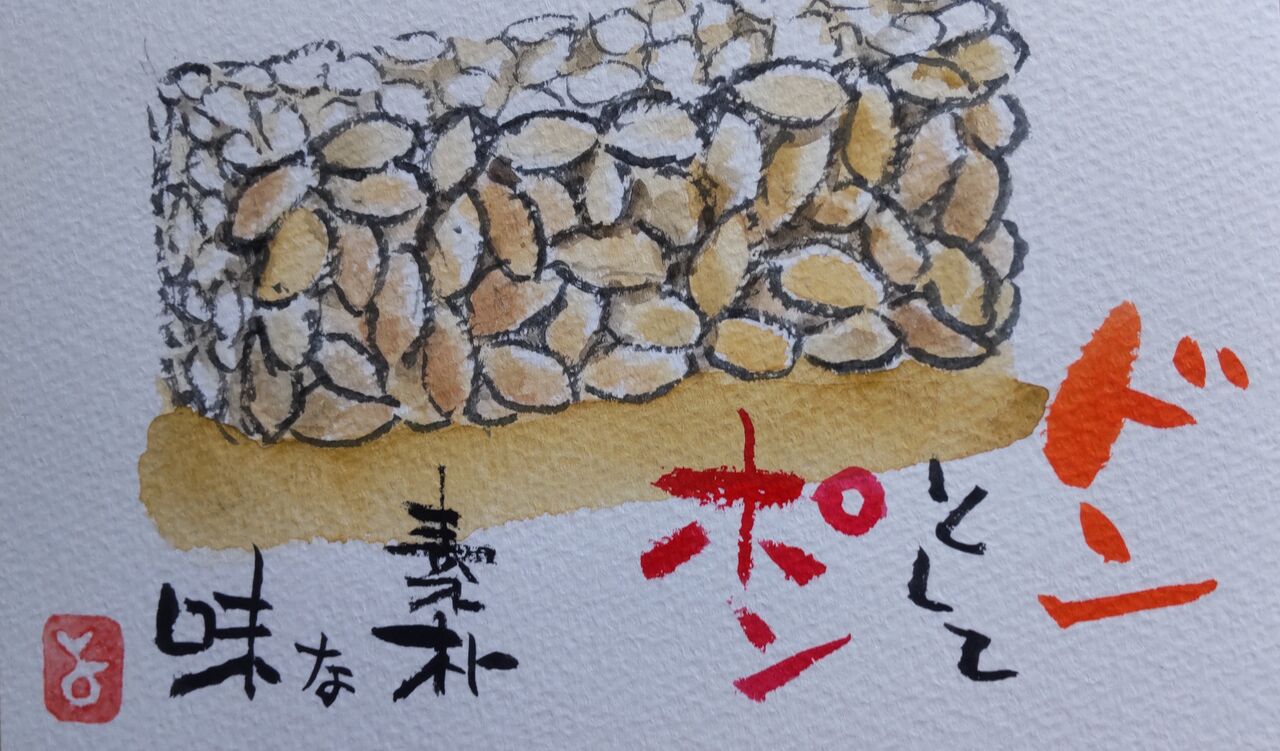 ドン
として
ポン
素朴
な
味